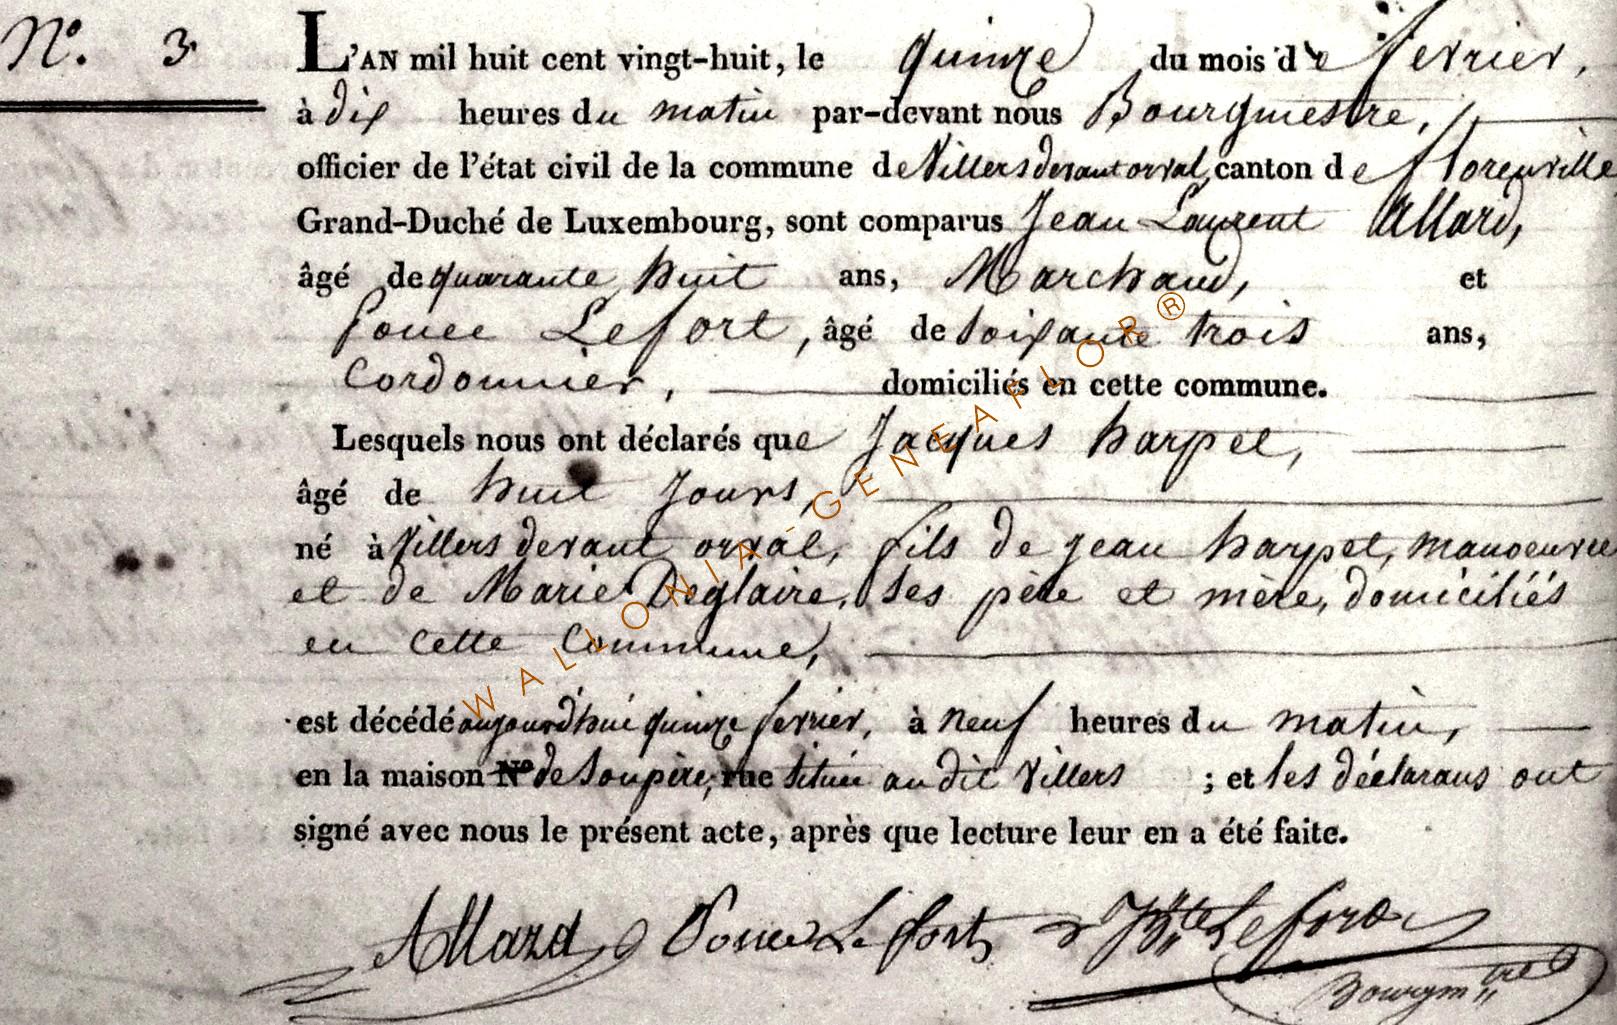 N°. 3
L'AN mil huit cent vingt-huit, le quinze du mois de fevrier,
à dix heures du matin par-devant nous Bourgmestre,
officier de l'état civil de la commune de Villers devant orval, canton de florenville
Grand-Duché de Luxembourg, sont comparus Jean Laurent Allard,
âgé de quarante huit ans, Marchand, et
Ponce Lefort, âgé de soixante trois ans,
Cordonnier, domiciliés en cette commune.
Lesquels nous ont déclarés que Jacques harpet,
âgé de huit Jours,
né à Villers devant orval, fils de jean harpet, manoeuvre
et de Marie Deglaire, ses père et mère, domiciliés
en cette Commune,
est décédé aujourd'hui quinze fevrier, à neuf heures du matin,
en la maison N° de son père, rue située au dit Villers ; et les déclarans ont
signé avec nous le présent acte, après que lecture leur en a été faite.
Allard Ponce Lefort Lefort
Bourgm tre
WALLONIA-GENEAFLOR®